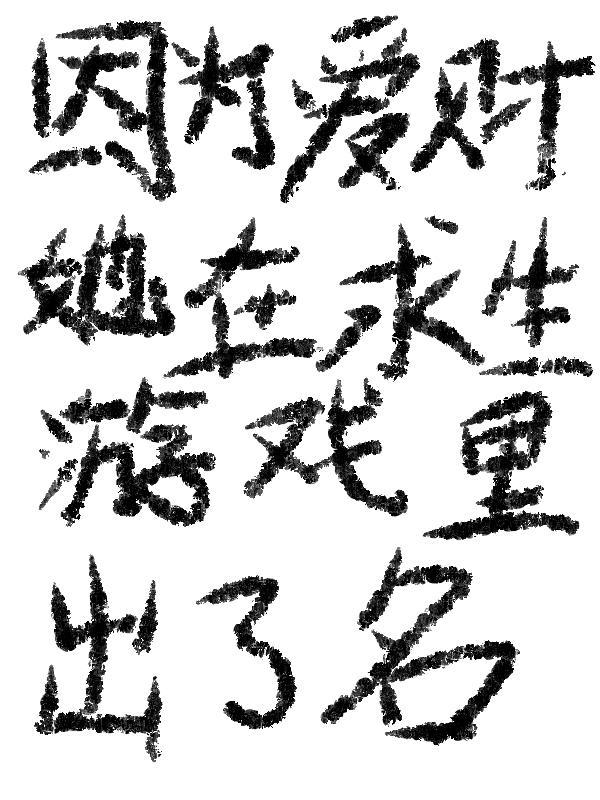 因灯爱财
她在求生
游戏里
出了名